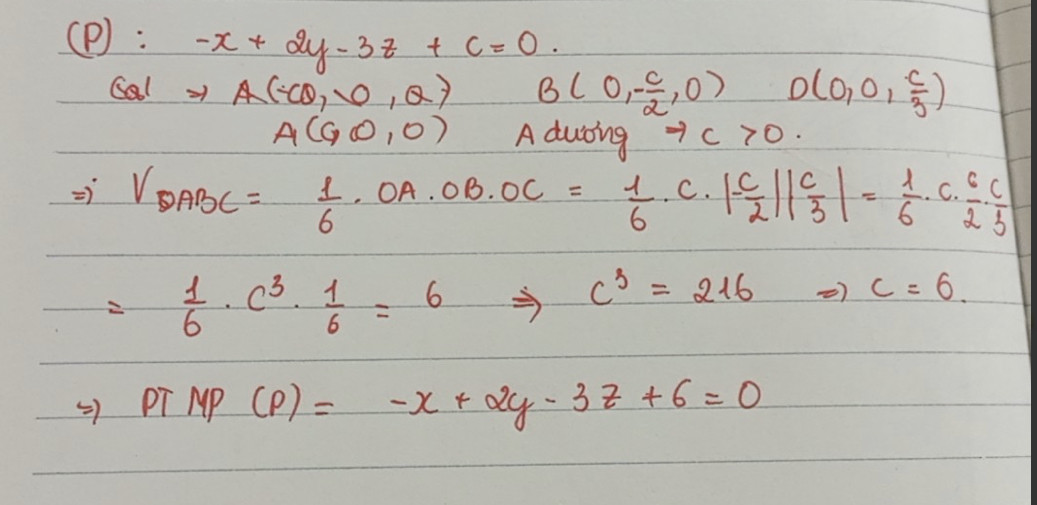 (P) : -x + 2y - 3z + c = 0 .
Gal => A(-c0, 0, 0) B( 0, -c/2, 0) D(0, 0, c/3)
A(c, 0, 0) A dương => c > 0 .
=> V OABC = 1/6 . OA . OB . OC = 1/6 . c . |-c/2| |c/3| = 1/6 . c . c/2 . c/3
= 1/6 . c³ . 1/6 = 6 => c³ = 216 => c = 6 .
=> PT MP (P) = -x + 2y - 3z + 6 = 0